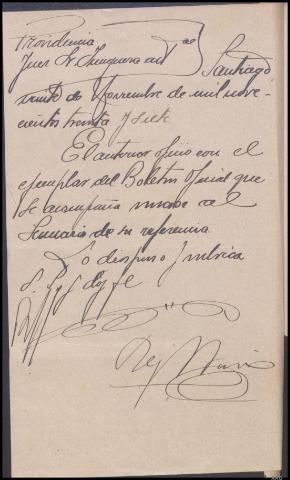 Providencia
Juez Sr. Santiago
veinte de Noviembre de mil nove-
cientos treinta y siete
El anterior oficio con el
ejemplar del Boletin Oficial que
se acompaña unase al
sumario de su referencia
Lo dispuso y rubrica
S. Sª y doy fe